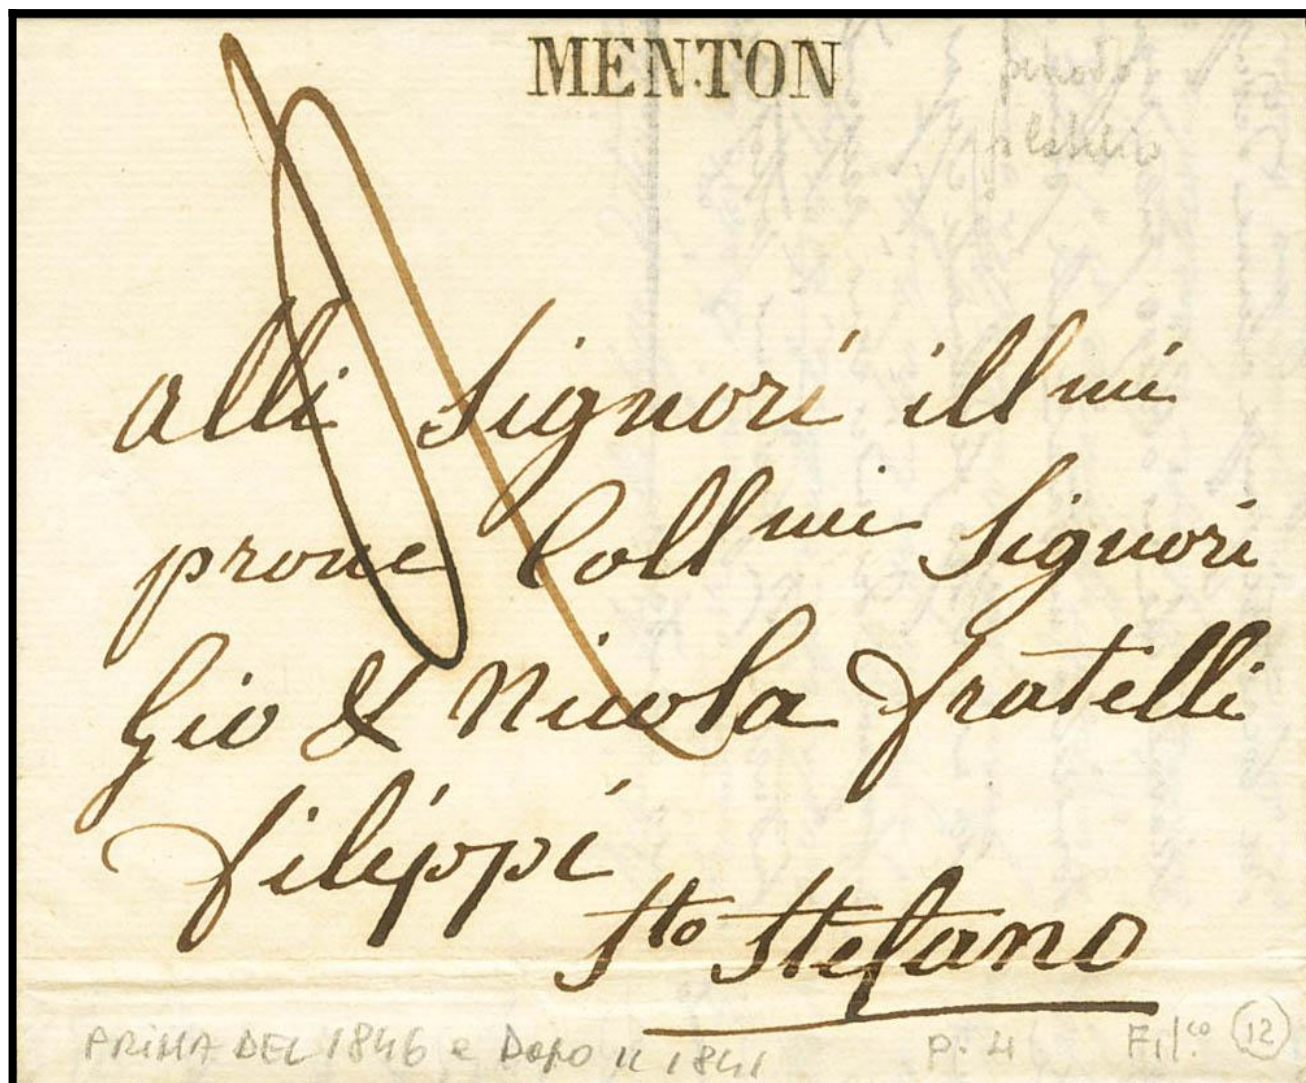 MENTON
alli Signori illmi
prone Collmi Signori
Gio & Nicola fratelli
filippi
Sto Stefano
PRIMA DEL 1846 e DOPO IL 1841
P. 4
Fil.co 12